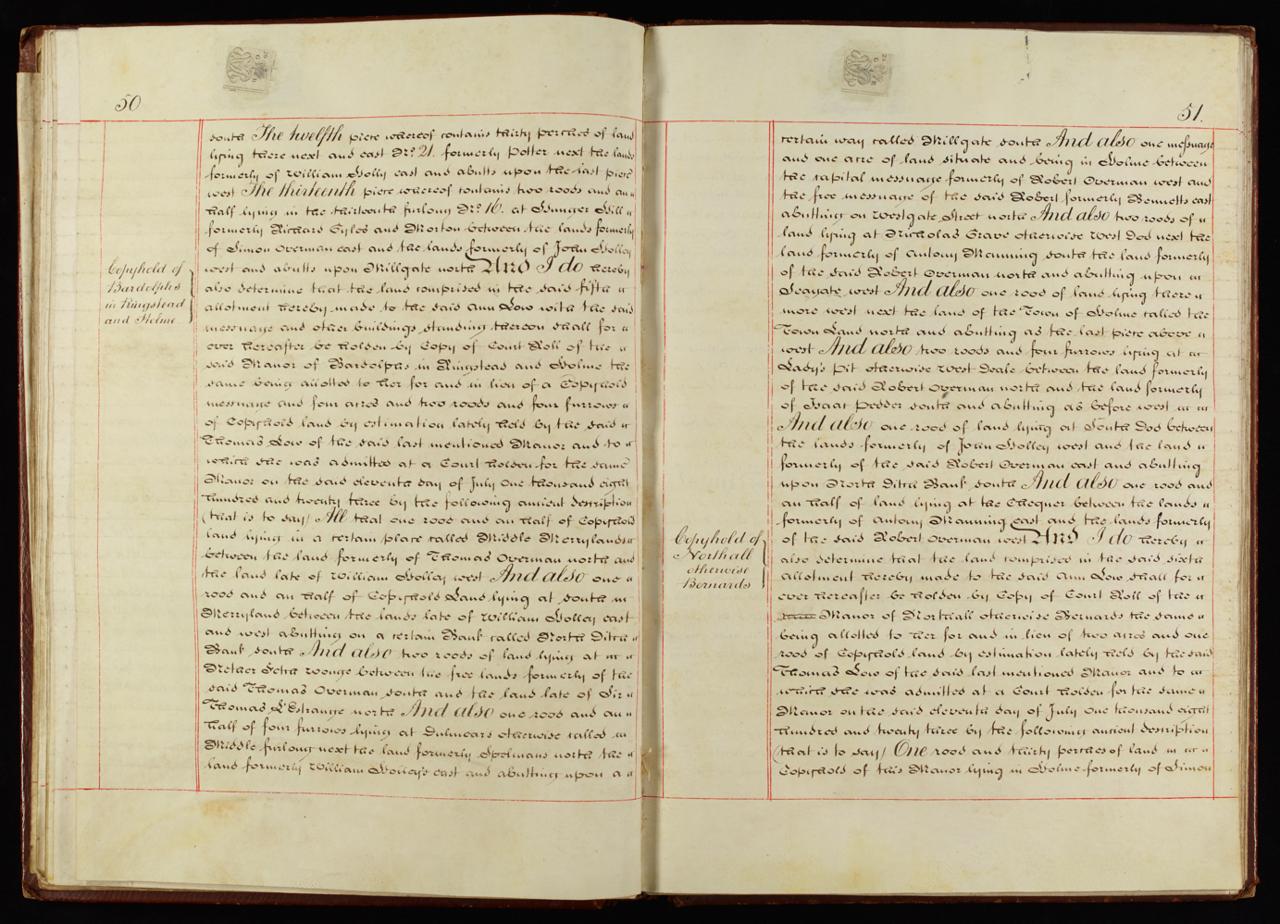 50
south The twelfth piece whereof contains thirty perches of land
lying there next and east No. 21. formerly Potter next the lands
formerly of William Golly east and abutts upon the last piece
west The thirteenth piece whereof contains two roods and an
half lying in the thirteenth furlong No. 16. at Hunger Hill
formerly Richard Gyles and Morton between the lands formerly
of Simon Overman east and the lands formerly of John Golley
west and abutts upon Millgate north And I do hereby
also determine that the land comprised in the said fifth
allotment hereby made to the said Ann Low with the said
messuage and other buildings standing thereon shall for
ever hereafter be holden by Copy of Court Roll of the
said Manor of Bardolphs in Ringstead and Holme the
same being allotted to her for and in lieu of a Copyhold
messuage and four acres and two roods and four furrows
of Copyhold land by estimation lately held by the said
Thomas Low of the said last mentioned Manor and to
which she was admitted at a Court holden for the same
Manor on the said eleventh day of July One thousand eight
hundred and twenty three by the following ancient description
(that is to say) All that one rood and an half of Copyhold
land lying in a certain place called Middle Merrylands
between the land formerly of Thomas Overman north and
the land late of William Golley west And also one
rood and an half of Copyhold Land lying at south
Merryland between the lands late of William Golley east
and west abutting on a certain Bank called North Ditch
Bank south And also two roods of land lying at
Nether woonge between the free lands formerly of the
said Thomas Overman south and the land late of Sir
Thomas L'Estrange north And also one rood and an
half of four furrows lying at otherwise called
Middle furlong next the land formerly Spelmans north the
land formerly William Golley's east and abutting upon a
Copyhold of
Bardolphs
in Ringstead
and Holme
51.
certain way called Millgate south And also one messuage
and one acre of land situate and being in Holme between
the capital messuage formerly of Robert Overman west and
the free messuage of the said Robert formerly Bennetts east
abutting on Westgate Street north And also two roods of
land lying at Nicholas Grave otherwise West Dod next the
land formerly of Antony Manning south the land formerly
of the said Robert Overman north and abutting upon
Seagate west And also one rood of land lying there
more west next the land of the Town of Holme called the
Town Land north and abutting as the last piece above
west And also two roods and four furrows lying at
Lady's Pit otherwise West Deale between the land formerly
of the said Robert Overman north and the land formerly
of Isaac Pedder south and abutting as before west
And also one rood of land lying at South Dod between
the lands formerly of John Golley west and the land
formerly of the said Robert Overman east and abutting
upon North Ditch Bank south And also one rood and
an half of land lying at the Chequer between the lands
formerly of Antony Manning east and the lands formerly
of the said Robert Overman west And I do hereby
also determine that the land comprised in the said sixth
allotment hereby made to the said Ann Low shall for
ever hereafter be holden by Copy of Court Roll of the
Manor of Northall otherwise Bernards the same
being allotted to her for and in lieu of two acres and one
rood of Copyhold land by estimation lately held by the said
Thomas Low of the said last mentioned Manor and to
which she was admitted at a Court holden for the same
Manor on the said eleventh day of July One thousand eight
hundred and twenty three by the following ancient description
(that is to say) One rood and thirty perches of land
Copyhold of this Manor lying in Holme formerly of Simon
Copyhold of
Northall
otherwise
Bernards